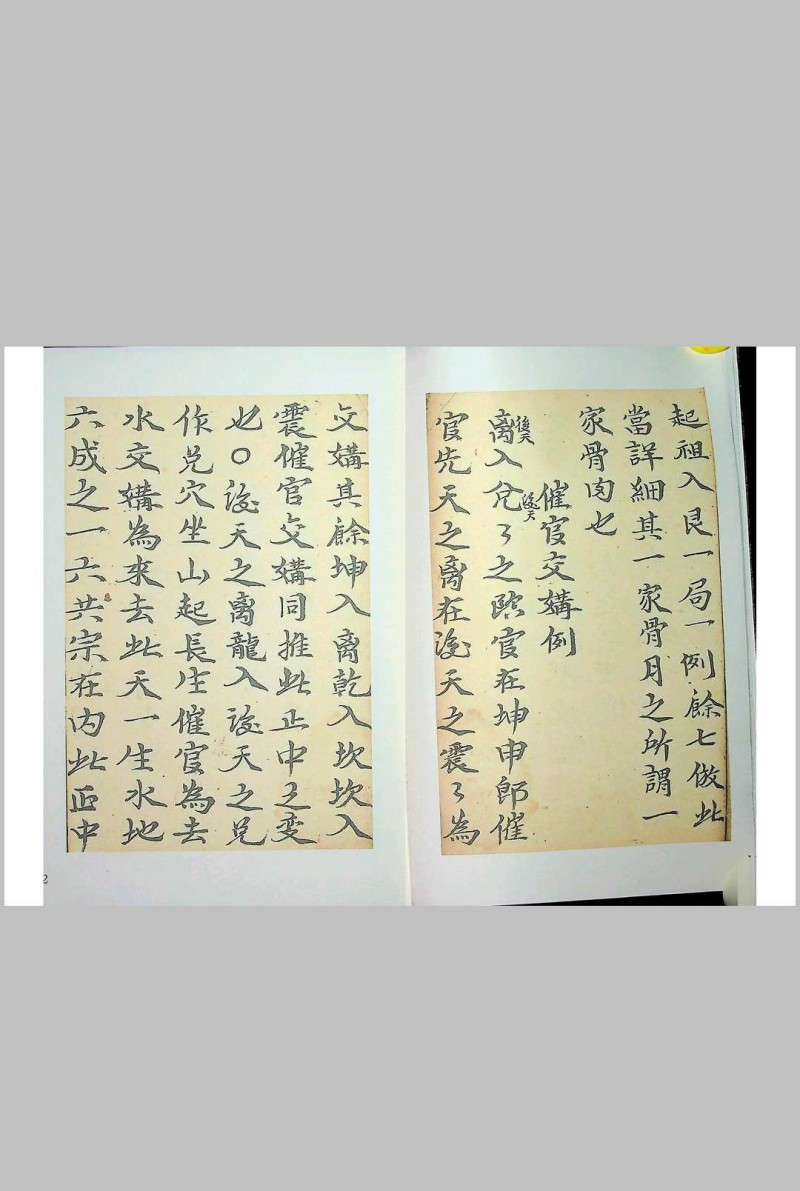 起祖入艮一局一例餘七倣此
當詳細其一家骨月之所謂一
家骨肉也
催官交媾例
後天离入後天兌々之臨官在坤申郎催
官先天之离在後天之震々為
交媾其餘坤入离乾入坎坎入
震催官交媾同推此正中之变
也○後天之离龍入後天之兑
作兑穴坐山起長生催官為去
水交媾為來去此天一生水地
六成之一六共宗在内此正中
2